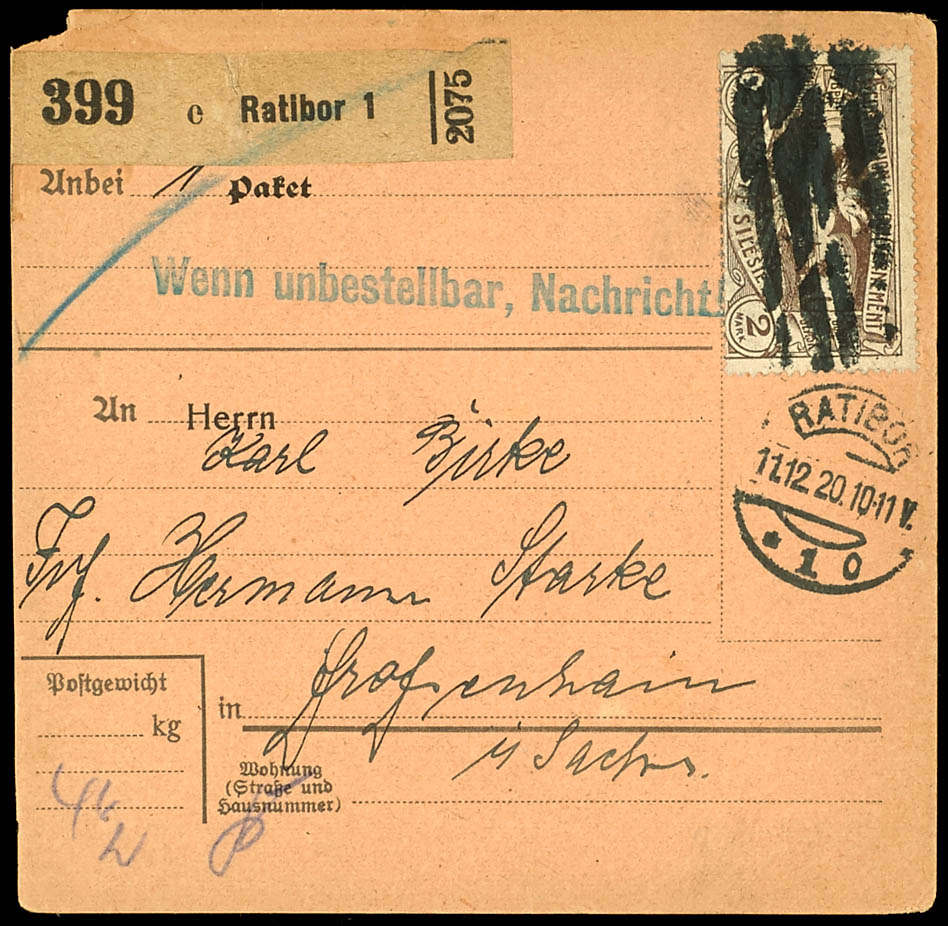 399 c Ratibor 1 2075
Anbei 1 Paket
Wenn unbestellbar, Nachricht!
SILESI
2
MARK
RATIBOR
11.12.20.10-11 V.
* 1 0 *
An Herrn
Karl Birke
Hermann Starke
Großenhain
in
i/ Sachs.
Postgewicht
kg
Wohnung
(Straße und
Hausnummer)